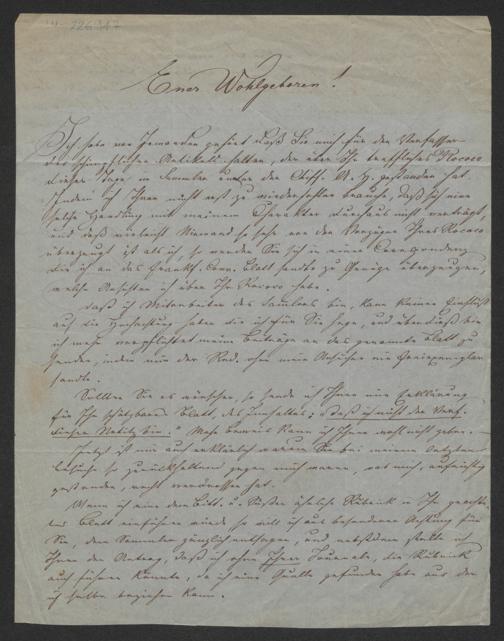 Euer Wohlgeboren!
Ich habe von Jemanden gehört daß Sie mich für den Verfasser
des schimpflichen Artikels halten, der über Ihr treffliches Rococo
dieser Tage im Sammler unter der Chiffre M. H. gestanden hat.
Indem ich Ihnen nicht erst zu wiederholen brauche, daß sich eine
solche Handlung mit meinem Charakter durchaus nicht verträgt,
und daß vielleicht Niemand so sehr von den Vorzügen Ihres Rococo
überzeugt ist als ich, so werden Sie sich in einer Correspondenz
die ich an das Frankf. Conv. Blatt sandte zu Genüge überzeugen,
welche Ansichten ich über Ihr Rococo habe.
Daß ich Mitarbeiter des Sammlers bin, kann keinen Einfluß
auf die Hochachtung haben die ich für Sie hege, und überdieß bin
ich nicht verpflichtet meine Beiträge an das genannte Blatt zu
senden, indem mir der Red. ohne mein Ansuchen ein Freiexemplar
sandte.
Sollten Sie es wünschen, so sende ich Ihnen eine Erklärung
für Ihr schätzbares Blatt, des Innhaltes: "daß ich nicht der Verf.
dieser Notitz bin." Mehr kann ich Ihnen wohl nicht geben.
Jetzt ist mir auch erklärlich warum Sie bei meinem letzten
Besuche so zurückhaltend gegen mich waren, was mich, aufrichtig
gestanden, recht verdrossen hat.
Wenn ich eine dem ähnliche Rubrik in Ihr geachte-
tes Blatt einführen würde so will ich aus besonderer Achtung für
Sie, dem Sammler gänzlich entsagen, und nebstdem stelle ich
Ihnen den Antrag, daß ich ohne Ihrer Journale, die Rubrik
auch führen könnte, da ich eine Quelle gefunden habe aus der
ich selbe beziehen kann.